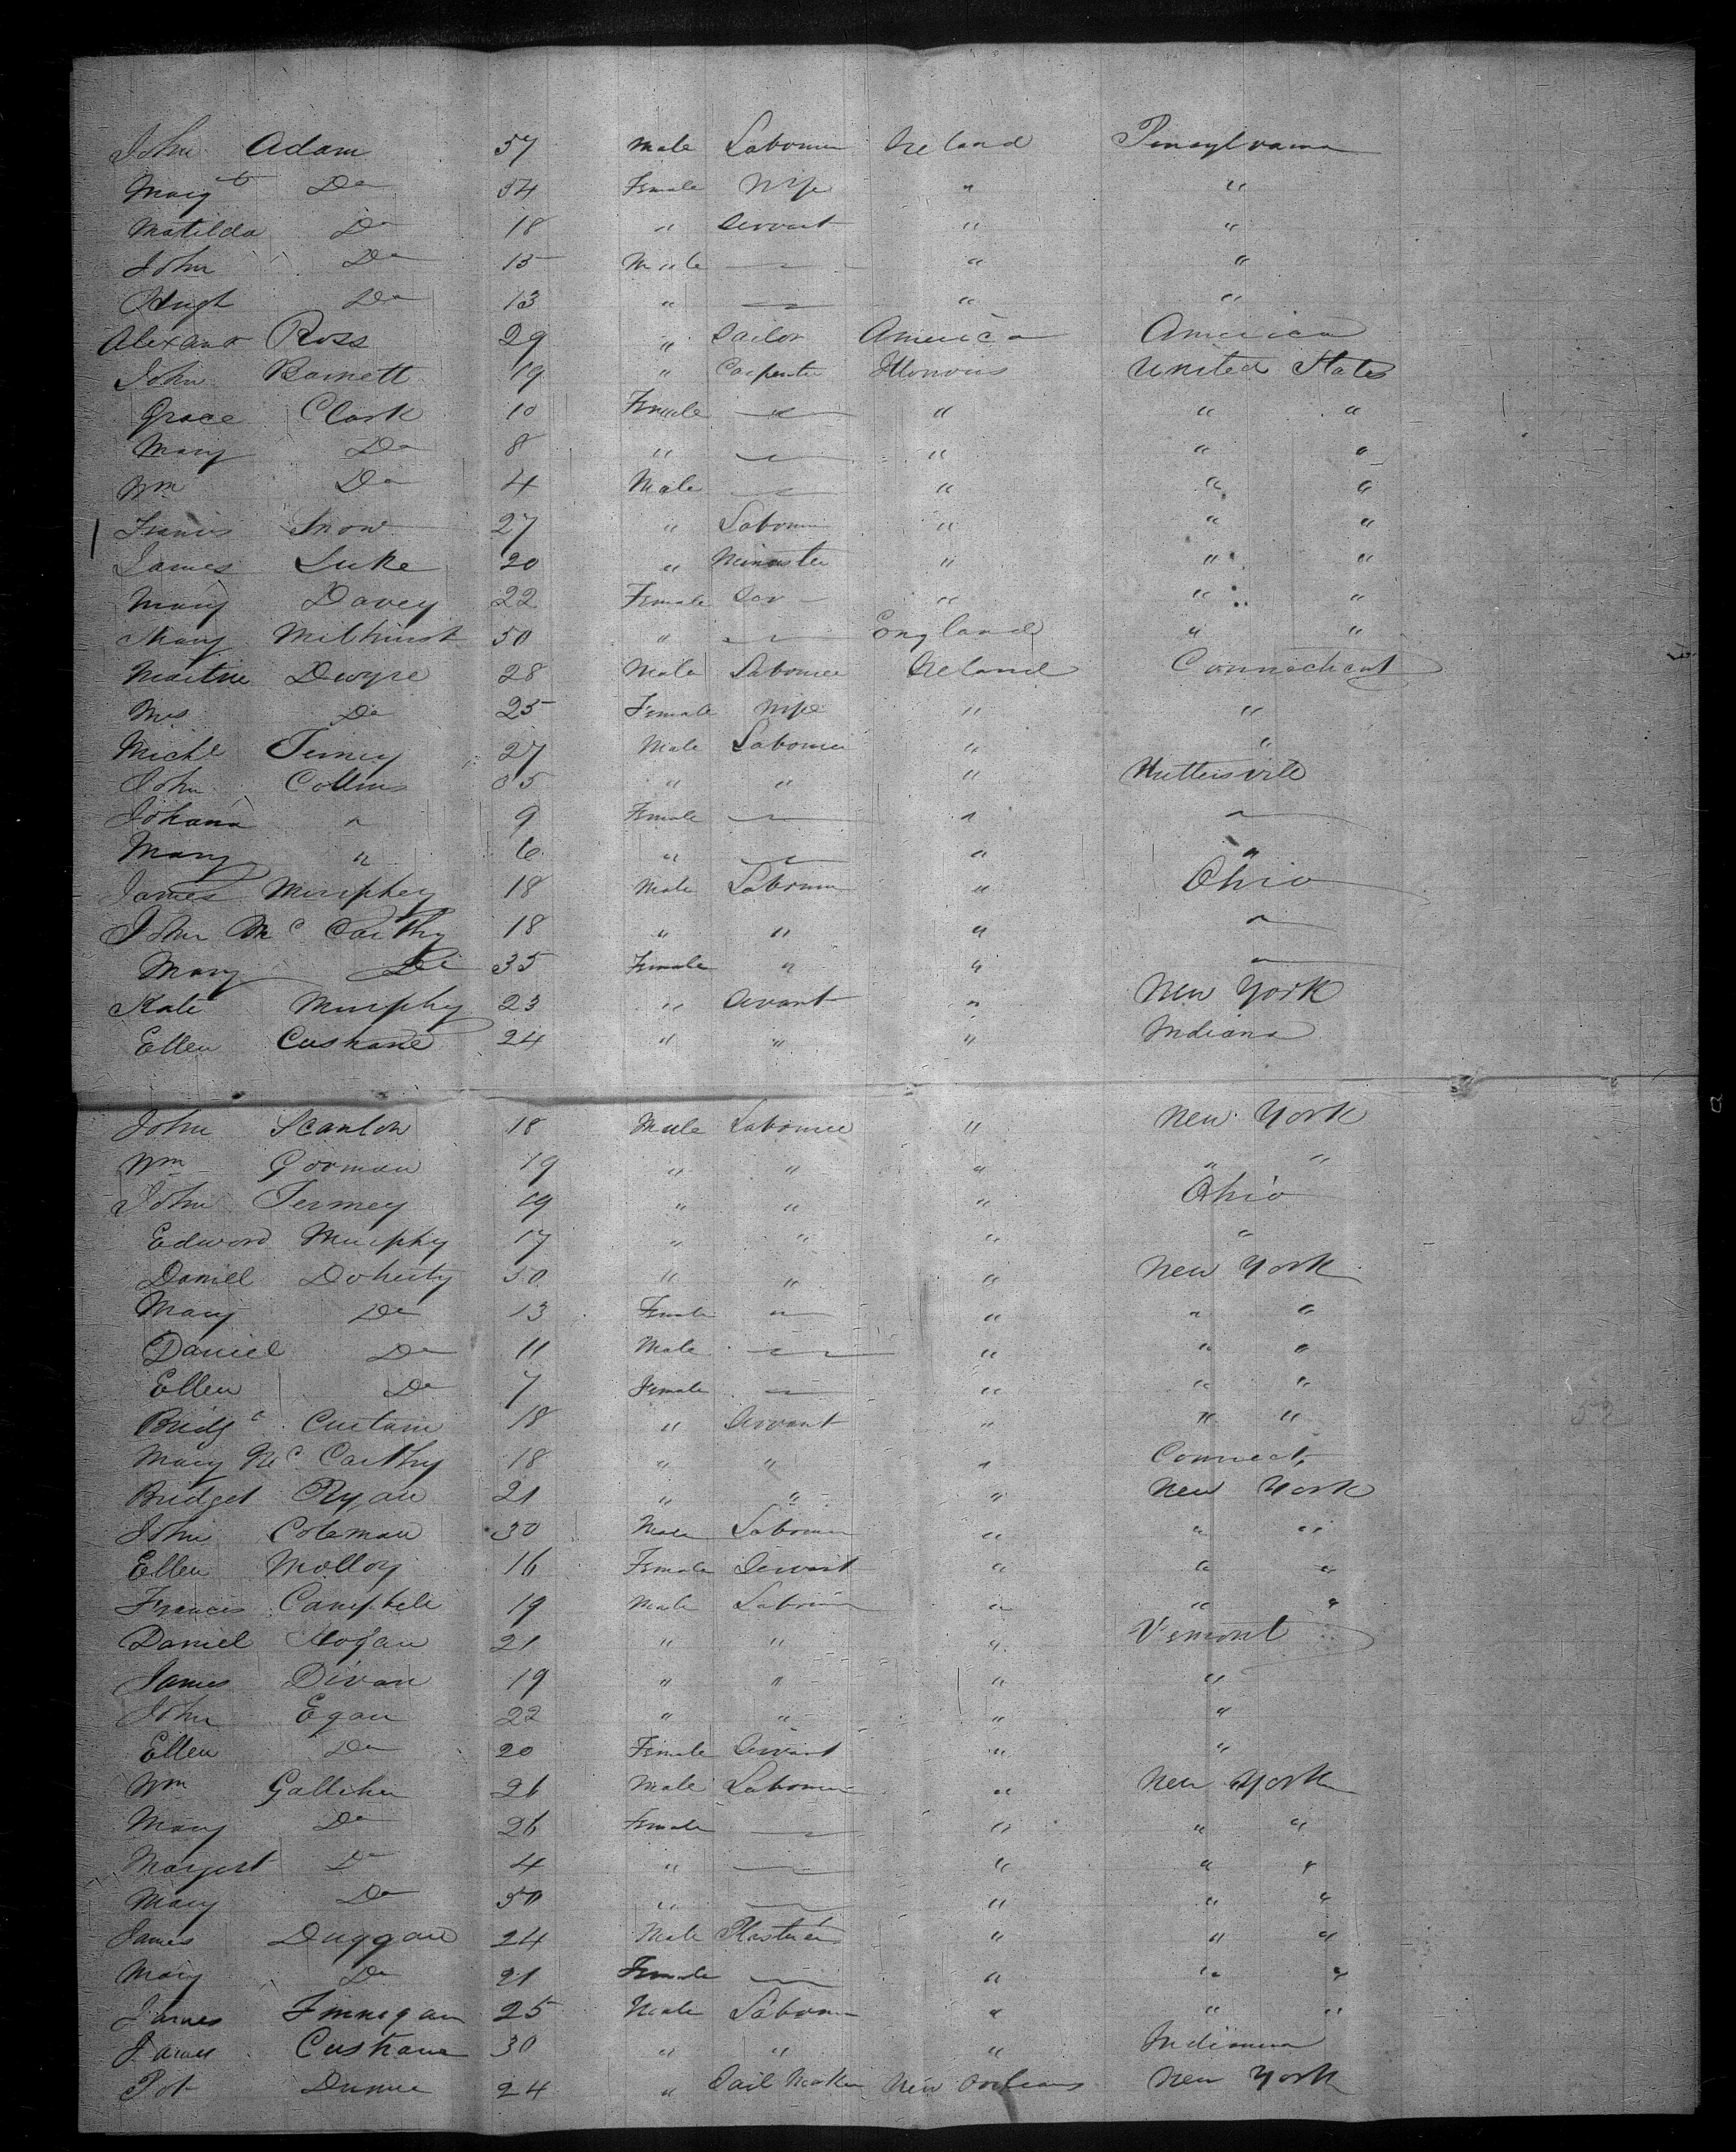 John Adam 57 Male Labourer Ireland Pensylvania
Margt Do 54 Female Wife " "
Matilda Do 18 " Servant " "
John Do 15 Male — " "
Hugh Do 13 " — " "
Alexand Ross 29 " Sailor America America
John Barnett 19 " Carpenter United States
Grace Clark 10 Female — " " "
Mary Do 8 " — " " "
Wm Do 4 Male — " " "
Francis Snow 27 " Labourer " " "
James Luke 20 " Minister " " "
Mary Davey 22 Female Ser — " " "
Mary Milhurst 50 " — England " "
Martin Dwyre 28 Male Labourer Ireland Connecticut
Mrs Do 25 Female Wife " "
Michl 27 Male Labourer " "
John Collins 35 " " " Huttersville
Johana " 9 Female — " "
Mary " 6 " — " "
James Murphey 18 Male Labourer " Ohio
John Mc Carthy 18 " " " "
Mary Do 35 Female " " "
Kate Murphy 23 " Servant " New York
Ellen Cushane 24 " " " Indiana
John Scanlon 18 Male Labourer " New York
Wm Gorman 19 " " " " "
John 19 " " " Ohio
Edward Murphy 17 " " " "
Daniel Doherty 50 " " " New York
Mary Do 13 Female " " " "
Daniel Do 11 Male — " " "
Ellen Do 7 Female — " " "
Bridgt Curtain 18 " Servant " " "
Mary Mc Carthy 18 " " " Connect
Bridget Ryan 21 " " " New York
John Coleman 30 Male Labourer " " "
Ellen Molloy 16 Female Servant " " "
Francis Campbell 19 Male Labourer " " "
Daniel Hogan 21 " " " Vermont
James Divan 19 " " " "
John Egan 22 " " " "
Ellen Do 20 Female Servant " "
Wm Galliher 26 Male Labourer " New York
Mary Do 26 Female — " " "
Margert Do 4 " — " " "
Mary Do 50 " — " " "
James Duggan 24 Male Plasterer " " "
Mary Do 21 Female — " " "
James Finnegan 25 Male Labourer " " "
James Cushane 30 " " " Indianna
Pat Dunne 24 " Sail Maker New Orleans New York
52